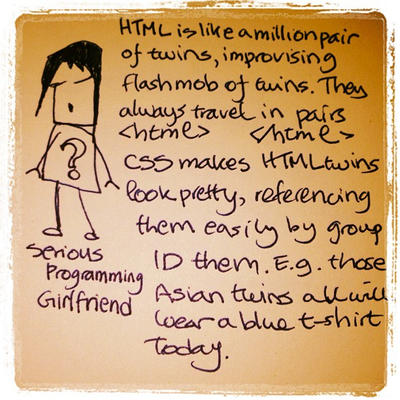 HTML is like a million pair
of twins, improvising
flash mob of twins. They
always travel in pairs
<html> </html>
CSS makes HTML twins
look pretty, referencing
them easily by group
ID them. E.g. those
Asian twins all will
wear a blue t-shirt
today.
?
Serious
Programming
Girlfriend